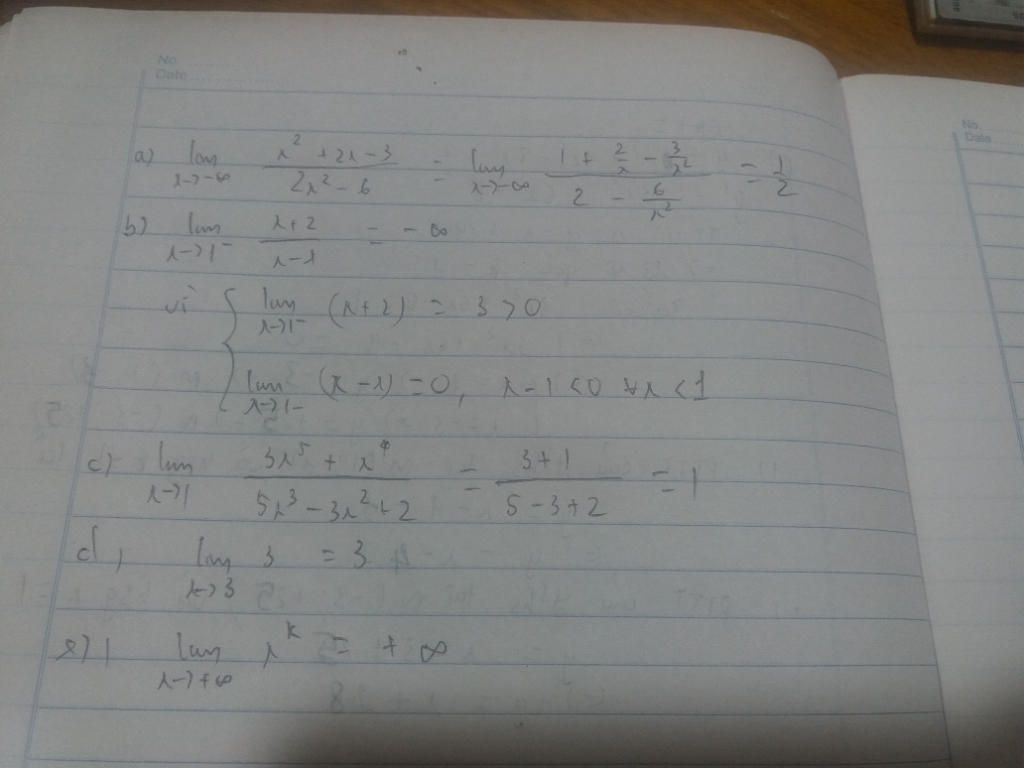 No.
Date
No.
Date
a) lim x→-∞ (x² + 2x - 3)/(2x² - 6) = lim x→-∞ (1 + 2/x - 3/x²)/(2 - 6/x²) = 1/2
b) lim x→1⁻ (x+2)/(x-1) = -∞
vì { lim x→1⁻ (x+2) = 3 > 0
lim x→1- (x-1) = 0, x-1 < 0 ∀x < 1
c) lim x→1 (3x⁵ + x⁴)/(5x³ - 3x² + 2) = (3+1)/(5-3+2) = 1
d, lim x→3 3 = 3
e) lim x→+∞ xᵏ = +∞